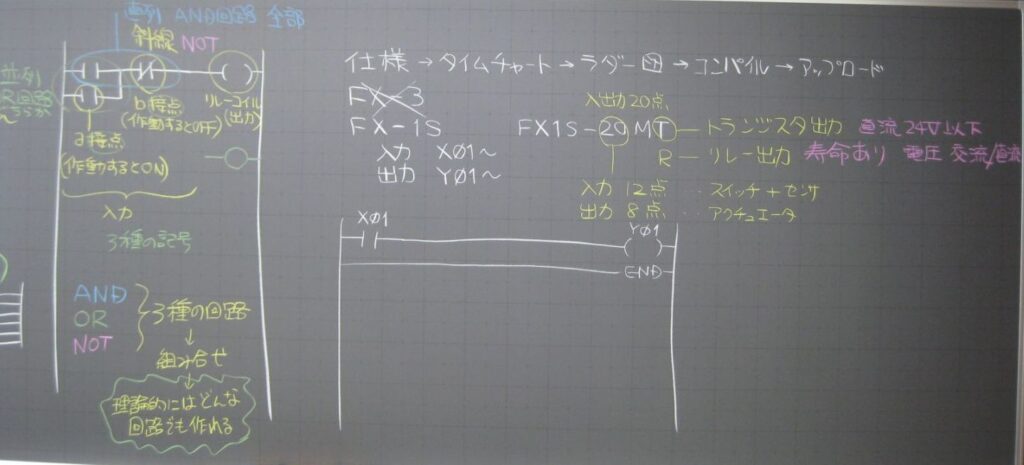 直列 AND回路 全部
斜線 NOT
並列
OR回路
b接点
(作動するとOFF)
リレーコイル
(出力)
a接点
(作動するとON)
入力
3種の記号
AND
OR
NOT
3種の回路
↓
組み合せ
↓
理論的にはどんな
回路でも作れる
仕様→タイムチャート→ラダー図→コンパイル→アップロード
FX-3
FX-1S
入力 X01~
出力 Y01~
入出力20点
FX1S-20MT トランジスタ出力 直流24V以下
R リレー出力 寿命あり 電圧 交流/直流
入力 12点 ‥スイッチ+センサ
出力 8点 ‥アクチュエータ
X01
Y01
END